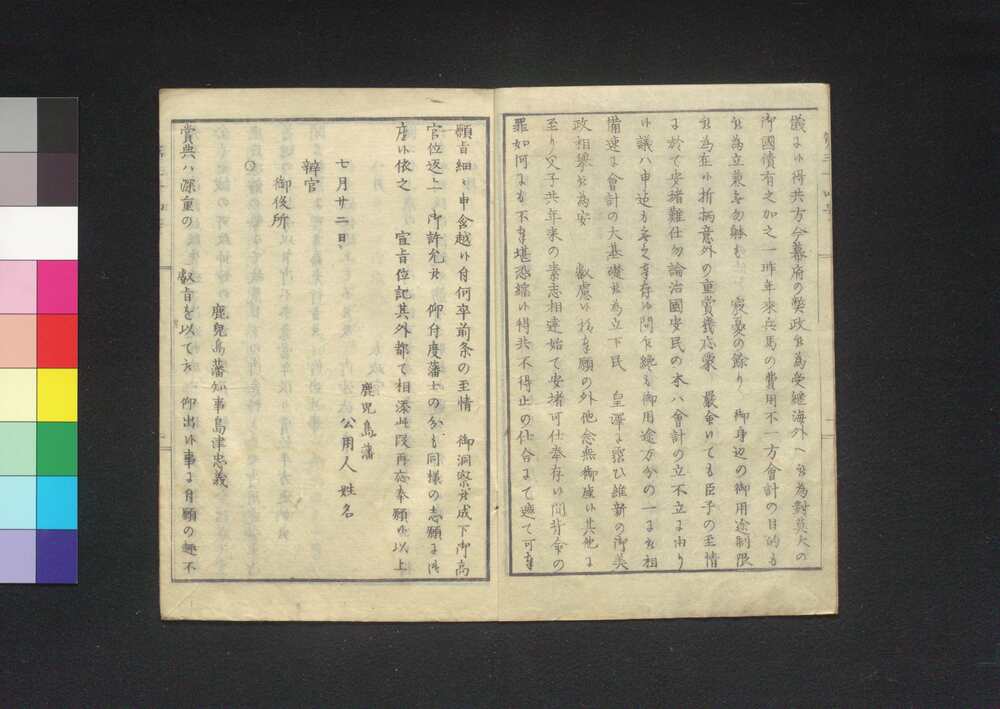 儀ニ候得共方今幕府の弊政を為受継海外へ被為対莫大の
御國債有之加之一昨年来兵馬の費用不一方會計の目的も
被為立兼候勿躰も 宸憂の餘り 御身辺の御用途制限
被為在候折柄意外の重賞幾忘蒙 嚴重いても臣子の至情
に於て安堵難仕勿論治國安民の本ハ會計の立不立に由り
候議ハ申迄も無之事存候間乍纔も御用途万分の一にも相
備速に會計の大基礎被為立下民 皇澤に霑ひ維新の御美
政相擧被為安 叡慮候様奉願の外他念無御座候其他に
至り父子共年来の素志相達始て安堵可仕奉存候間背命の
罪如何にも不奉堪恐縮候得共不得止の仕合にて遮て可奉
願旨細々申含越候自何卒前条の至情 御洞察被成下御高
官位返上 御許允被 仰付度藩士の分も同様の志願に御
座候依之 宣旨位記其外都て相添此段再応奉願候以上
鹿児島藩
公用人 姓名
七月廿二日
辨官
御役所
○
鹿兒島藩知事島津忠義
賞典ハ深重の 叡旨を以て被 仰出候事に自願の趣不